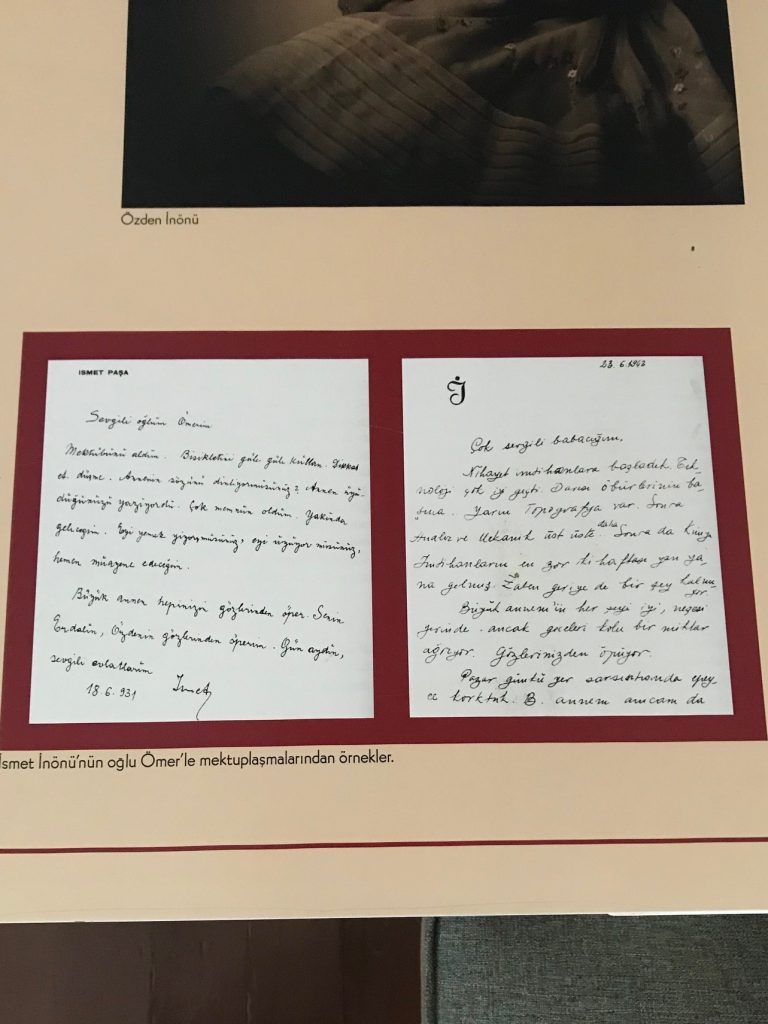 Özden İnönü
ISMET PAŞA
Sevgili oğlum Ömerim
Mektubunu aldım. Bisikletini güle güle kullan. Dikkat
et. düşme. Annenin sözünü dinliyormusunuz? Annen üyü-
düğünüzü yazıyordu. Çok memnun oldum. Yakında
geleceğim. Eyi yemek yiyormusunuz, eyi üyüyor musunuz,
hemen müayene edeceğim.
Büyük annen hepinizin gözlerinden öper. Senin
Erdalın, Özdenin gözlerinden öperim. Gün aydın,
sevgili evlatlarım
18.6.931 İsmet
23.6.1942
İ
Çok sevgili babacığım,
Nihayet imtihanlara başladık. Tek-
noloji çok iyi geçti. Darısı öbürlerinin ba-
şına. Yarın Topografya var. Sonra
Analiz ve Mekanik üst üste. Sonra da Kimya
İmtihanların en zor iki haftası yan ya-
na gelmiş. Zaten geriye de bir şey kalmı-
yor.
Büyük annem'in her şeyi iyi, neşesi
yerinde. ancak geceleri kolu bir miktar
ağrıyor. Gözlerinizden öpüyor.
Pazar günkü yer sarsıntısında epey-
ce korktuk. B. annem amcam da
İsmet İnönü'nün oğlu Ömer'le mektuplaşmalarından örnekler.